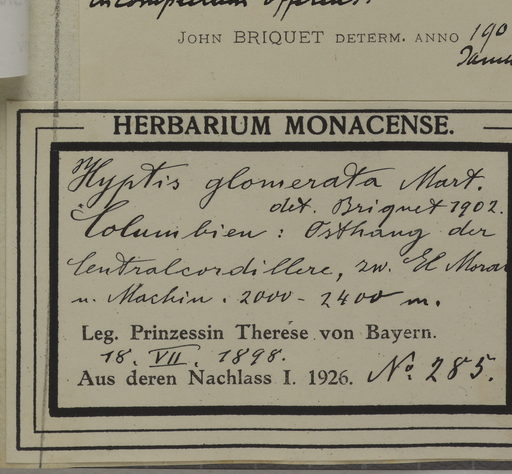 incompletum
JOHN BRIQUET DETERM. ANNO 190
HERBARIUM MONACENSE.
Hyptis glomerata Mart.
det. Briquet 1902.
Columbien: Osthang der
Centralcordillere, zw. El Moral
u. Machin. 2000-2400 m.
Leg. Prinzessin Therese von Bayern.
18. VII. 1898.
Aus deren Nachlass I. 1926. No. 285.